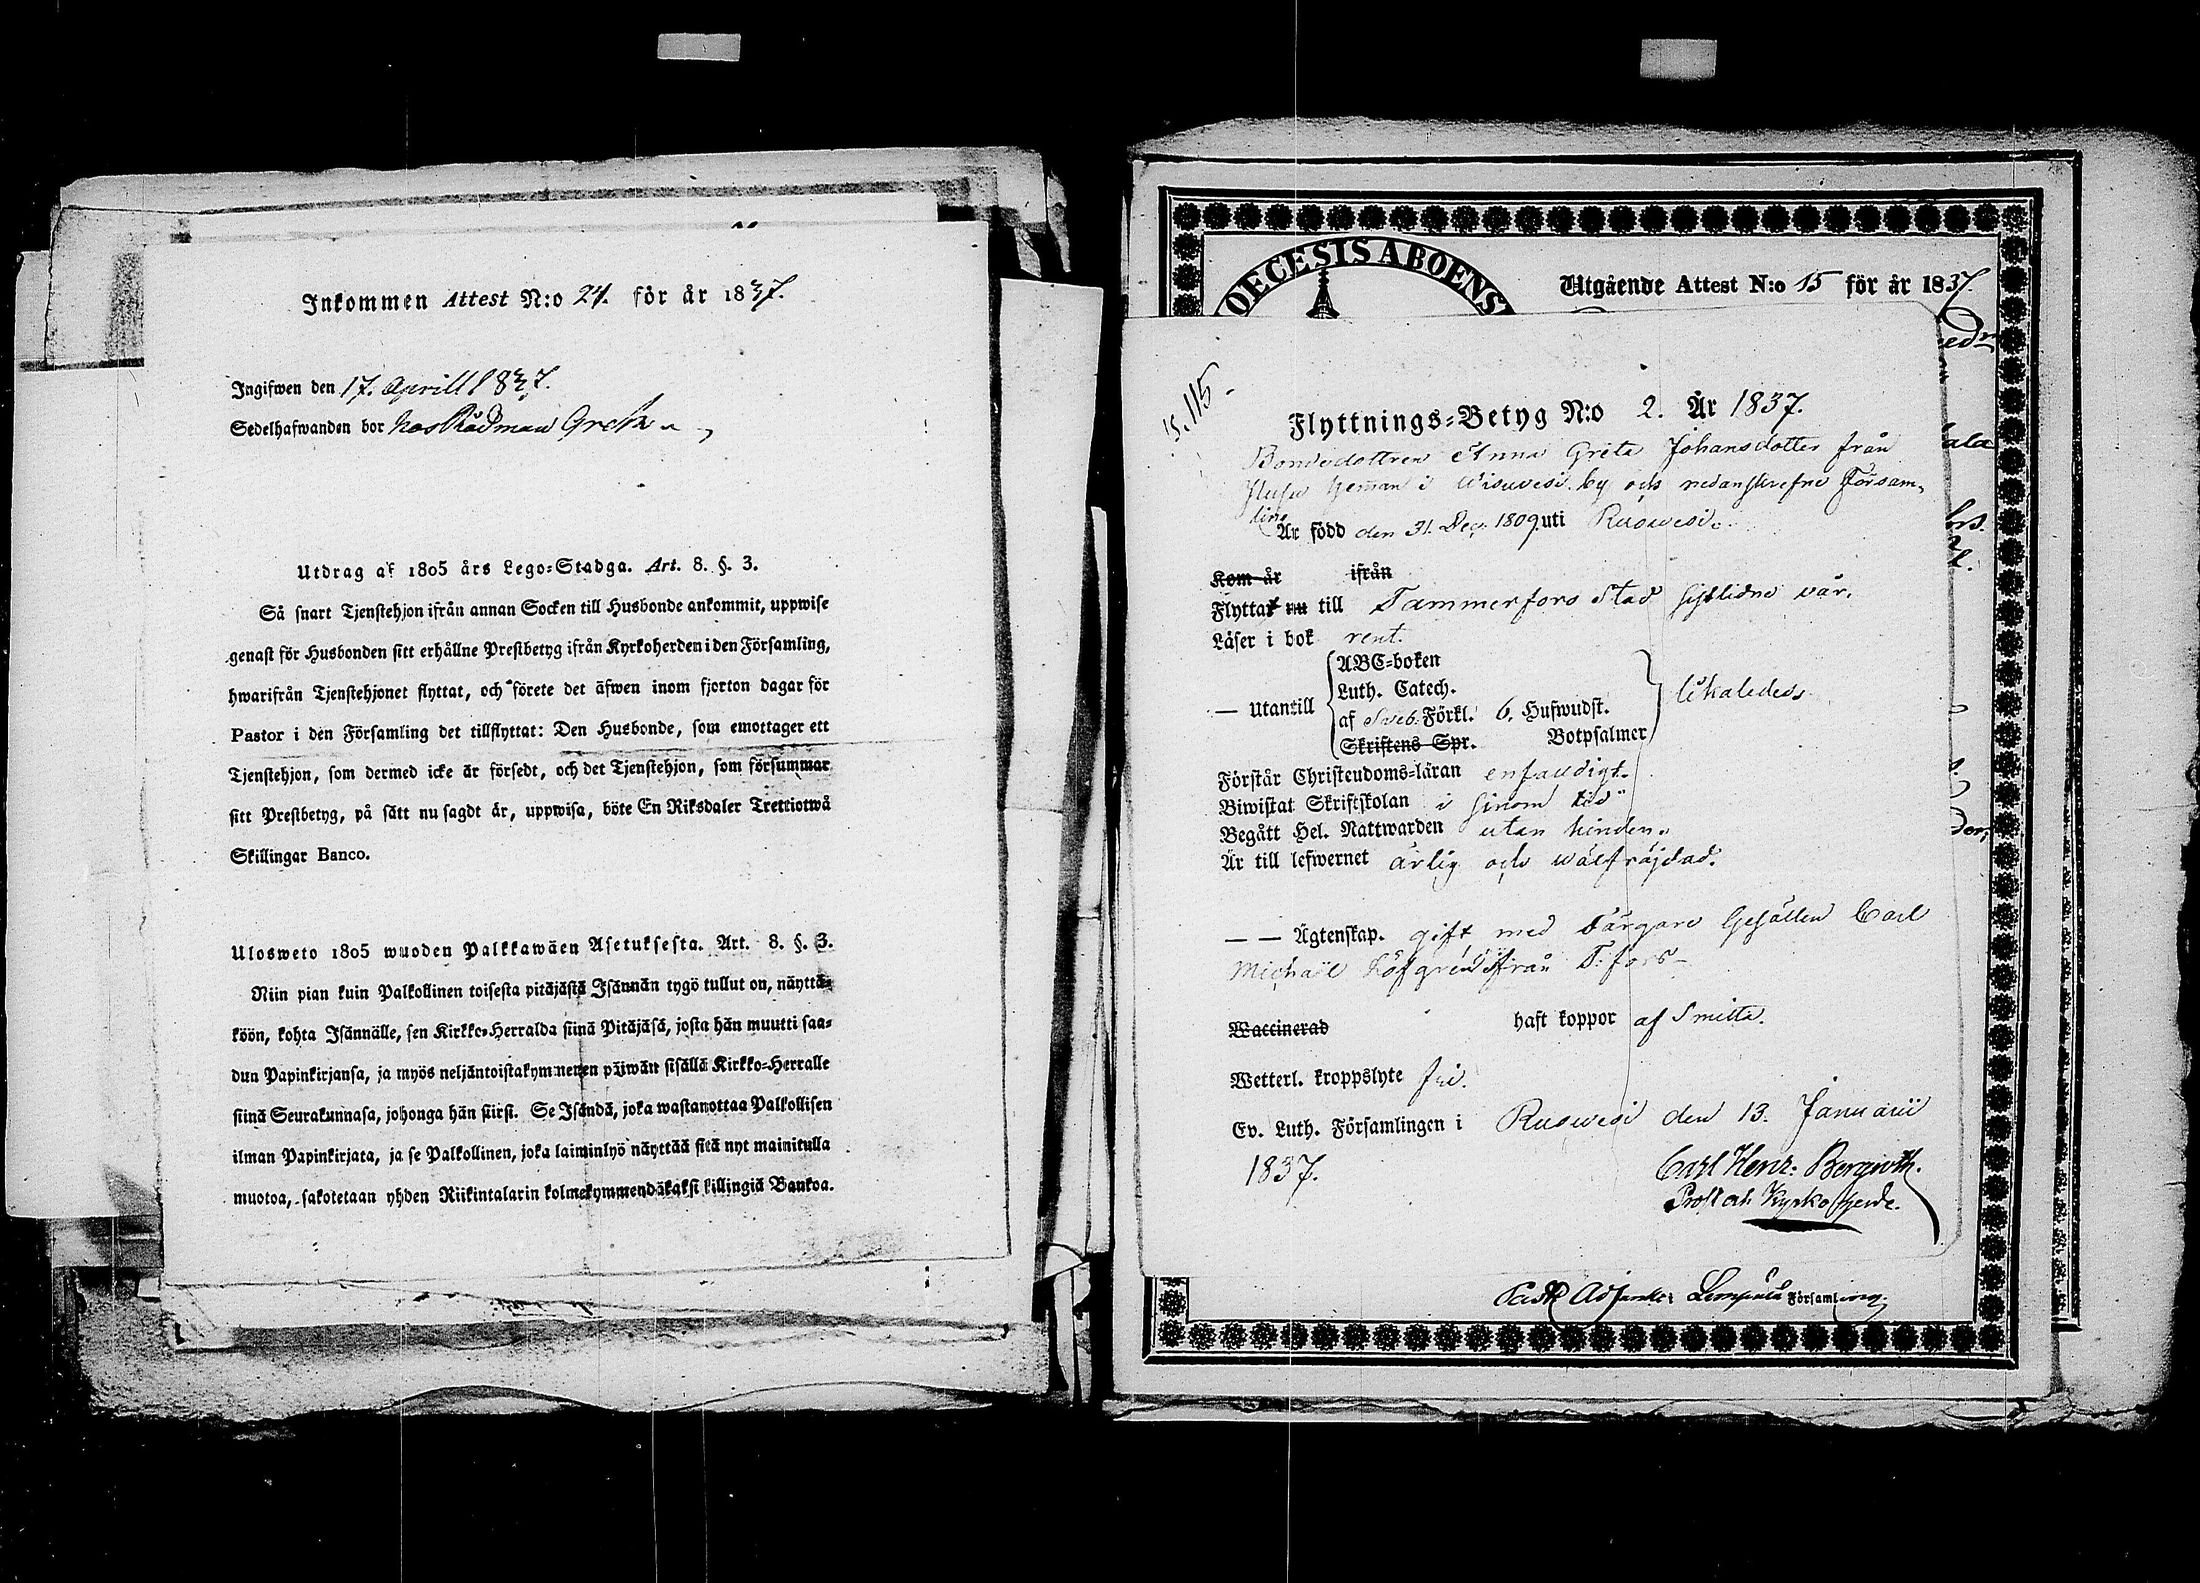 Inkommen Attest N:o 24. för år 1837.
Ingifwen den 17. Aprill 1837.
Sedelhafwanden bor hos Rådman Greth
Utdrag af 1805 års Lego-Stadga. Art. 8. §. 3.
Så snart Tjenstehjon ifrån annan Socken till Husbonde ankommit, uppwise
genast för Husbonden sitt erhållne Prestbetyg ifrån Kyrkoherden i den Församling,
hwarifrån Tjenstehjonet flyttat, och förete det äfwen inom fjorton dagar för
Pastor i den Församling det tillflyttat: Den Husbonde, som emottager ett
Tjenstehjon, som dermed icke är försedt, och det Tjenstehjon, som försummar
sitt Prestbetyg, på sätt nu sagdt är, uppwisa, böte En Riksdaler Trettiotwå
Skillingar Banco.
Ulosweto 1805 wuoden Palkkawäen Asetuksesta. Art. 8. §. 3.
Niin pian kuin Palkollinen toisesta pitäjästä Isännän tygö tullut on, näyttä-
köön, kohta Isännälle, sen Kirkko-Herralda siinä Pitäjäsä, josta hän muutti saa-
dun Papinkirjansa, ja myös neljäntoistakymmenen päiwän sisällä Kirkko-Herralle
siinä Seurakunnasa, johonga hän siirsi. Se Isändä, joka wastanottaa Palkollisen
ilman Papinkirjata, ja se Palkollinen, joka laiminlyö näyttää sitä nyt mainitulla
muotoa, sakotetaan yhden Riikintalarin kolmekymmendäkaksi killingiä Bankoa.
OECESIS ABOENS
Utgående Attest N:o 15 för år 1837
S. 115
Flyttnings-Betyg N:o 2. År 1837.
Bondedottren Anna Greta Johansdotter från
i Wisuvesi by och nedanskrefne Försam-
ling
Är född den 31. Dec. 1809. uti Ruowesi.
Kom år ifrån
Flyttat nu till Tammerfors Stad sistlidne vår.
Läser i bok rent.
— Utantill
ABC-boken
Luth. Catech.
af Sveb. Förkl. 6. Hufwudst.
Skriftens Spr. Botpsalmer
likaledes
Förstår Christendoms-läran enfaldigt.
Biwistat Skriftskolan i sinom tid
Begått Hel. Nattwarden utan hinder.
Är till lefwernet ärlig och wälfräjdad.
— — Ägtenskap. gift med Färgare Gesällen Carl
Michael Löfgren ifrån T:fors
Waccinerad haft koppor af Smitta.
Wetterl. kroppslyte fri.
Ev. Luth. Församlingen i Ruowesi den 13. Januarii
1837.
Carl Henr: Bergroth.
Prost och Kyrkoherde.
Past. Adjunkt i Lempälä Församling.